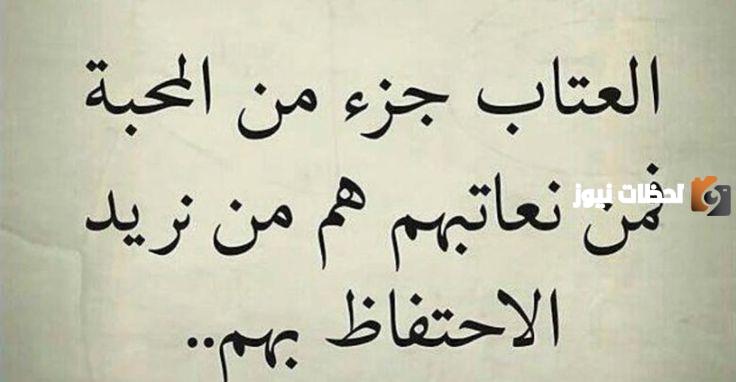 العتاب جزء من المحبة
فمن نعاتبهم هم من نريد
الاحتفاظ بهم..
لحظات نيوز